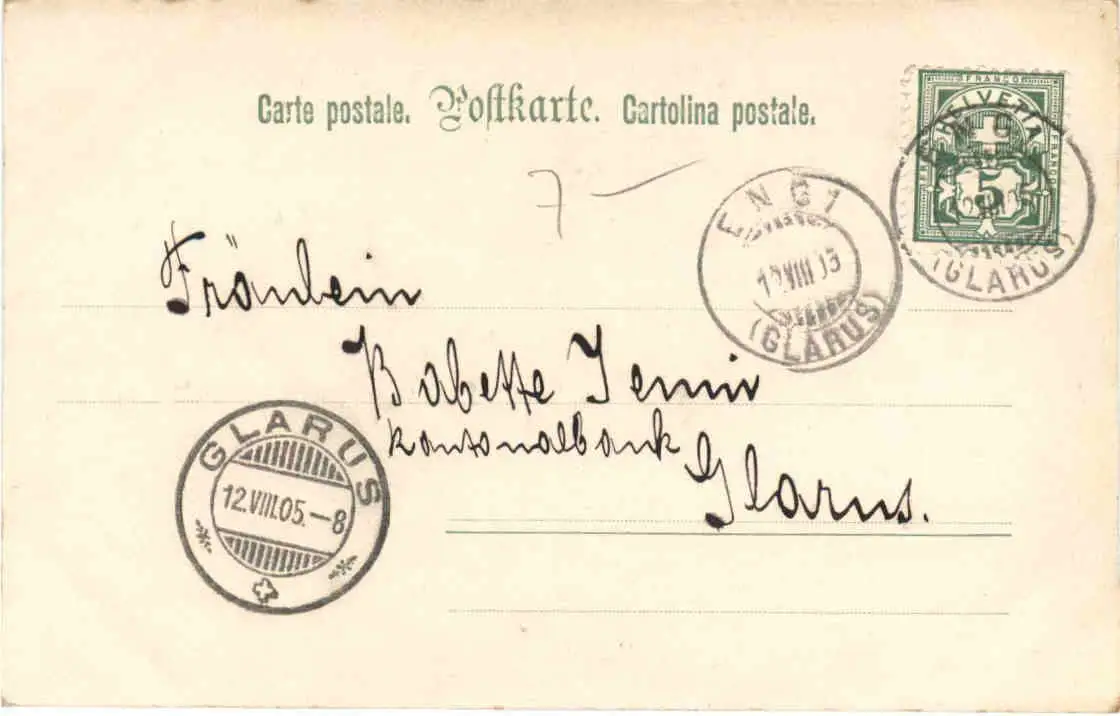 Carte postale. Postkarte. Cartolina postale.
FRANCO
HELVETIA
FRANCO
FRANCO
5
(GLARUS)
7 —
ENGI
12 VIII 05
(GLARUS)
Fräulein
Babette Jenny
Kantonalbank
Glarus.
GLARUS
12.VIII.05.-8